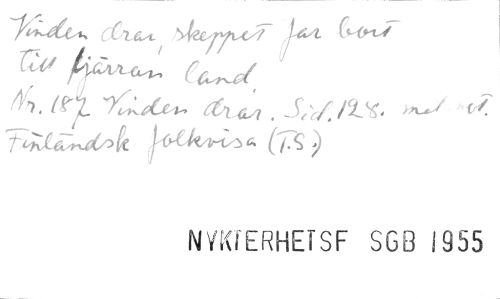 Vinden drar, skeppet far bort
till fjärran land
Nr. 187 Vinden drar. Sid. 128. mel. not.
Finländsk folkvisa (T.S.)
NYKTERHETSF SGB 1955